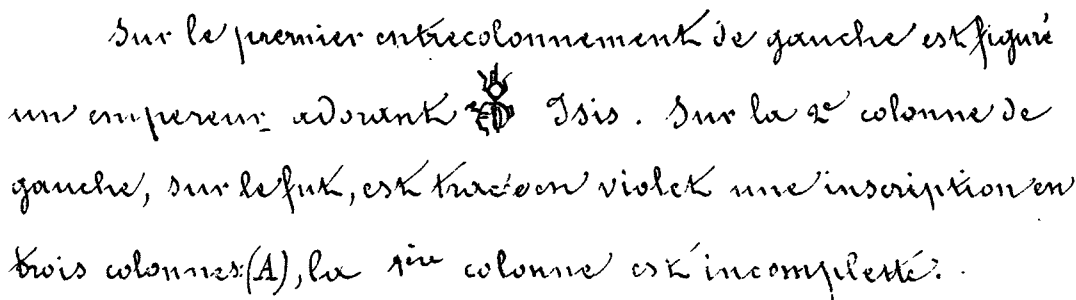 Sur le premier entrecolonnement de gauche est figuré
un empereur adorant Isis. Sur la 2e colonne de
gauche, sur le fut, est tracée en violet une inscription en
trois colonnes (A), la 1ère colonne est incomplette.